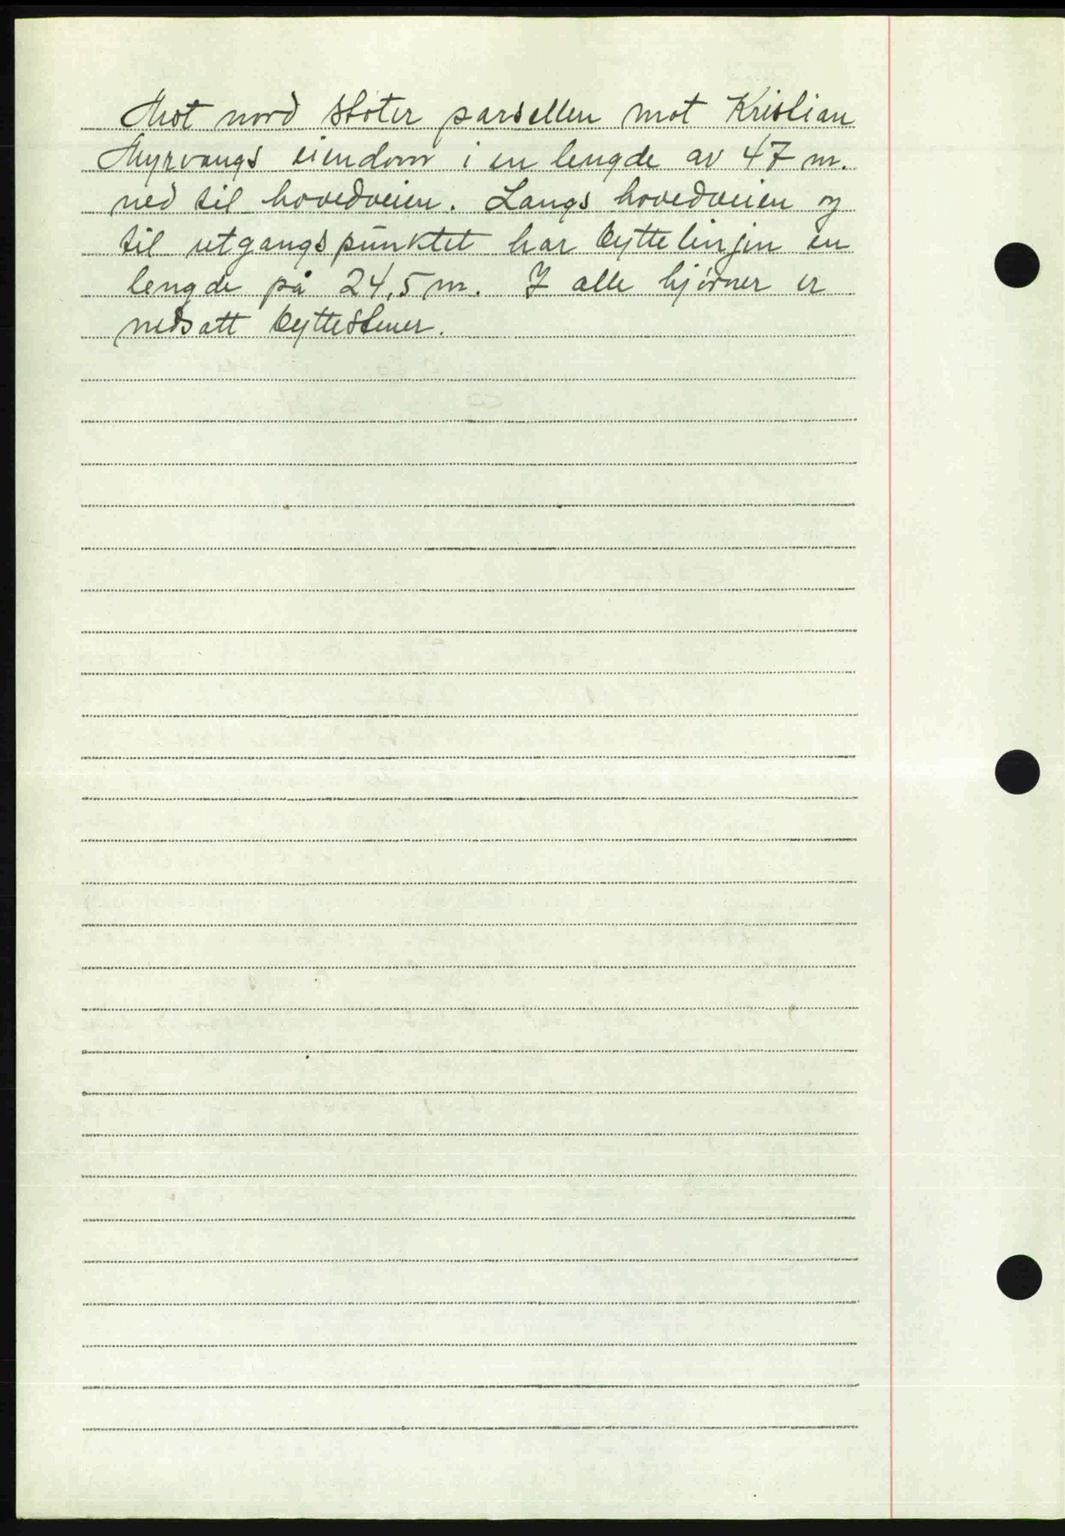 Mot nord støter parsellen mot Kristian
Myrvangs eiendom i en lengde av 47 m.
ned til hovedveien. Langs hovedveien og
til utgangspunktet har byttelinjen en
lengde på 24,5 m. I alle hjørner er
nedsatt byttestener.